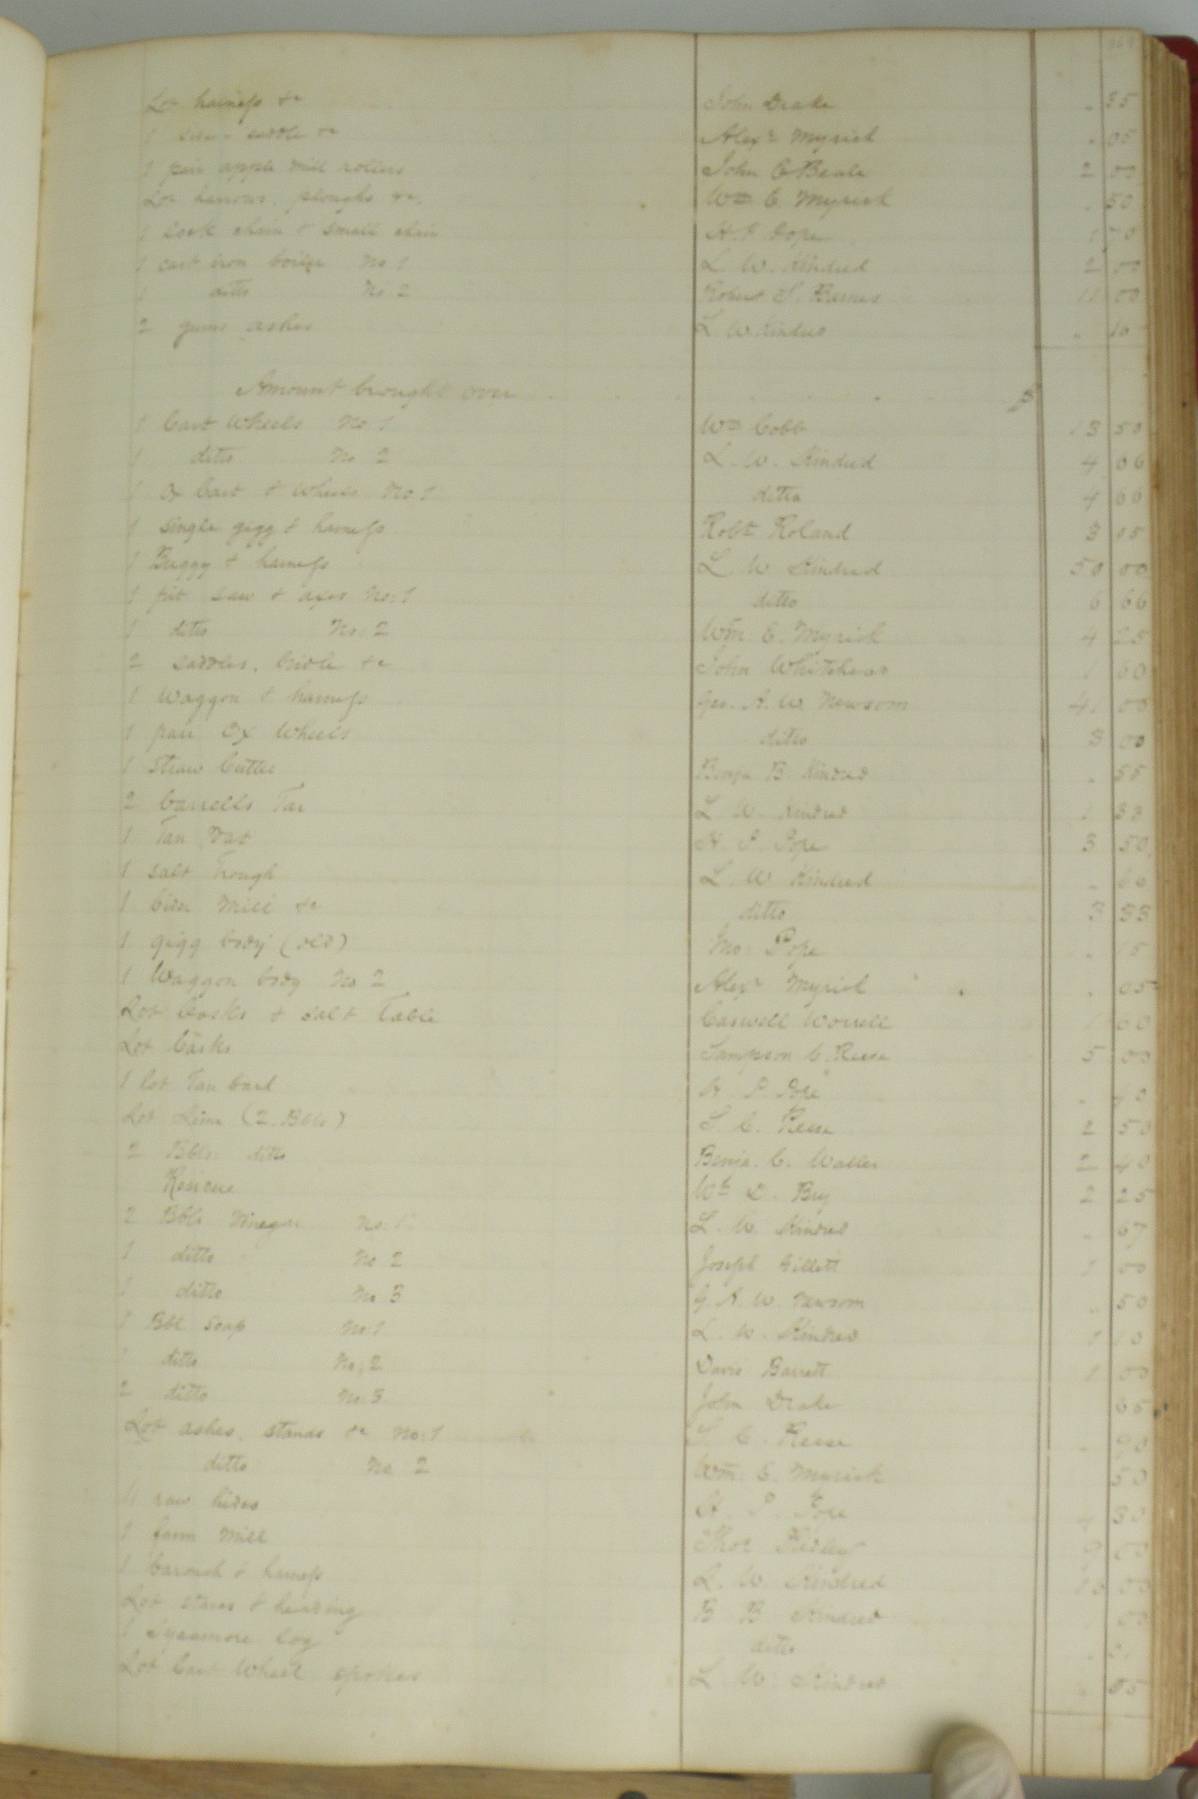 Lot harness &c John Drake . 35
1 saddle &c Alexr Myrick . 05
1 pair apple mill rollers John C Beale 2 00
Lot harrows, ploughs &c. Wm E. Myrick . 50
1 lock chain & small chain H. P. Pope 1
1 cast iron boiler No 1 L. W. Kindred 2 00
1 ditto No 2 Robert S. Barnes 11 00
2 gums ashes L W. Kindred . 10
Amount brought over $
1 Cart Wheels No 1 Wm Cobb 13 50
1 ditto No 2 L. W. Kindred 4 06
1 Ox Cart & Wheels No. 1 ditto 4 66
1 single gigg & harness Robt Roland 3 05
1 Buggy & harness L W Kindred 50 00
1 pit saw & axes No. 1 ditto 6 66
1 ditto No. 2 Wm E. Myrick 4 25
2 saddles, bridle &c John Whitehead 1 60
1 Waggon & harness Geo. A. W. Newsom 4. 00
1 pair Ox Wheels ditto 3 00
1 Straw Cutter Benja B. Kindred . 55
2 barrells Tar L W. Kindred 1 33
1 Tan Vat H. P. Pope 3 50
1 salt Trough L. W Kindred . 60
1 Cider Mill &c ditto 3 33
1 gigg body (old) Jno: Pope . 15
1 Waggon body No 2 Alexr Myrick . 05
Lot Casks & salt Table Caswell Worrell 1 60
Lot Casks Sampson C. Reese 5 00
1 lot Tan bark H. P. Pope . 40
Lot Lime (2. Bbls) S. C. Reese 2 50
2 Bbls. ditto Benja. C. Waller 2 40
Residue Wm D. Bry 2 25
2 Bbls Vinegar No. 1 L. W. Kindred . 67
1 ditto No 2 Joseph Gillett 1 00
1 ditto No 3 G. A. W. Newsom . 50
1 Bbl soap No. 1 L. W. Kindred 1
1 ditto No. 2 Davis Barrett 1 00
2 ditto No. 3 John Drake 65
Lot ashes, stands &c No: 1 S C. Reese . 90
ditto No 2 Wm. E. Myrick 50
raw hides H. P. Pope 4 30
1 fann Mill Thos Ridley 9
1 Barouch & harness L. W. Kindred 00
Lot staves & heading B B Kindred 00
1 Sycamore log ditto
Lot Cart Wheel spokes L W. Kindred . 05